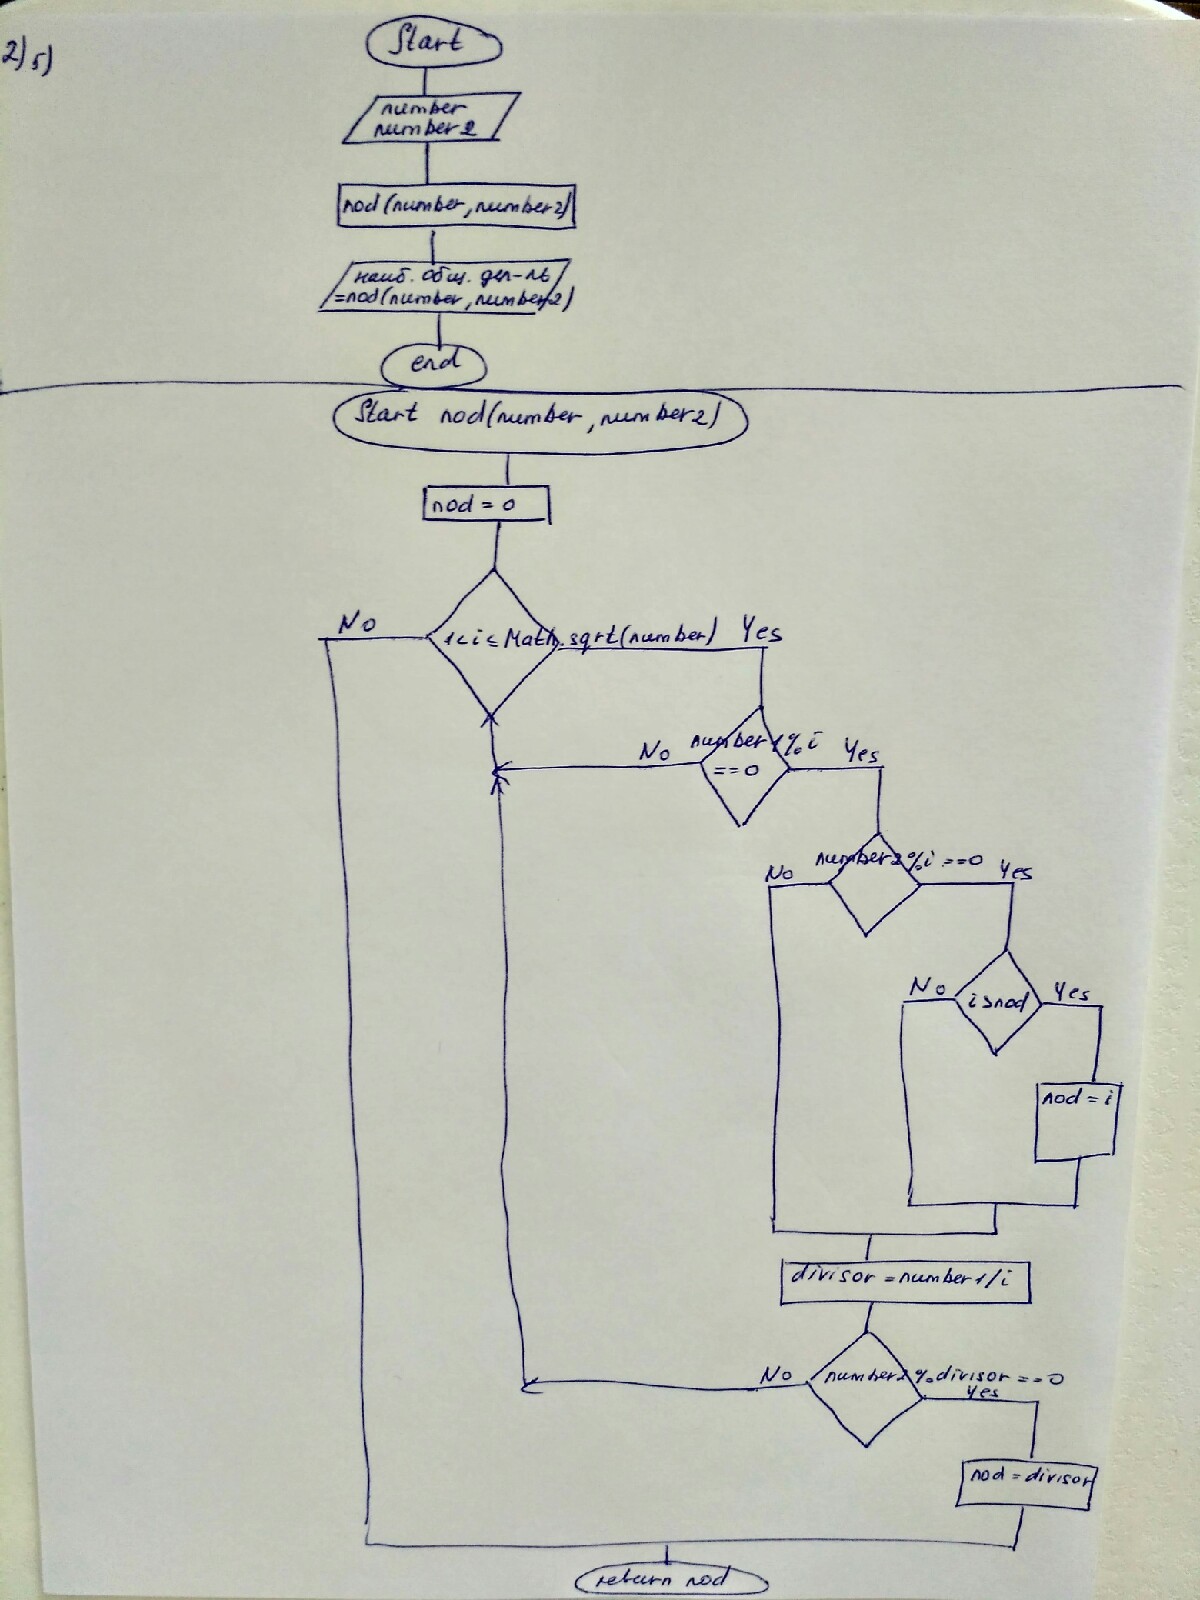 2) 5)
Start
number
number 2
nod(number, number2)
наиб. общ. дел-ль
=nod(number, number2)
end
Start nod(number, number2)
nod = 0
No
1<i≤Math.sqrt(number)
Yes
No
number1%i
==0
Yes
No
number2%i==0
Yes
No
i>nod
Yes
nod=i
divisor=number1/i
No
number2%divisor==0
Yes
nod=divisor
return nod